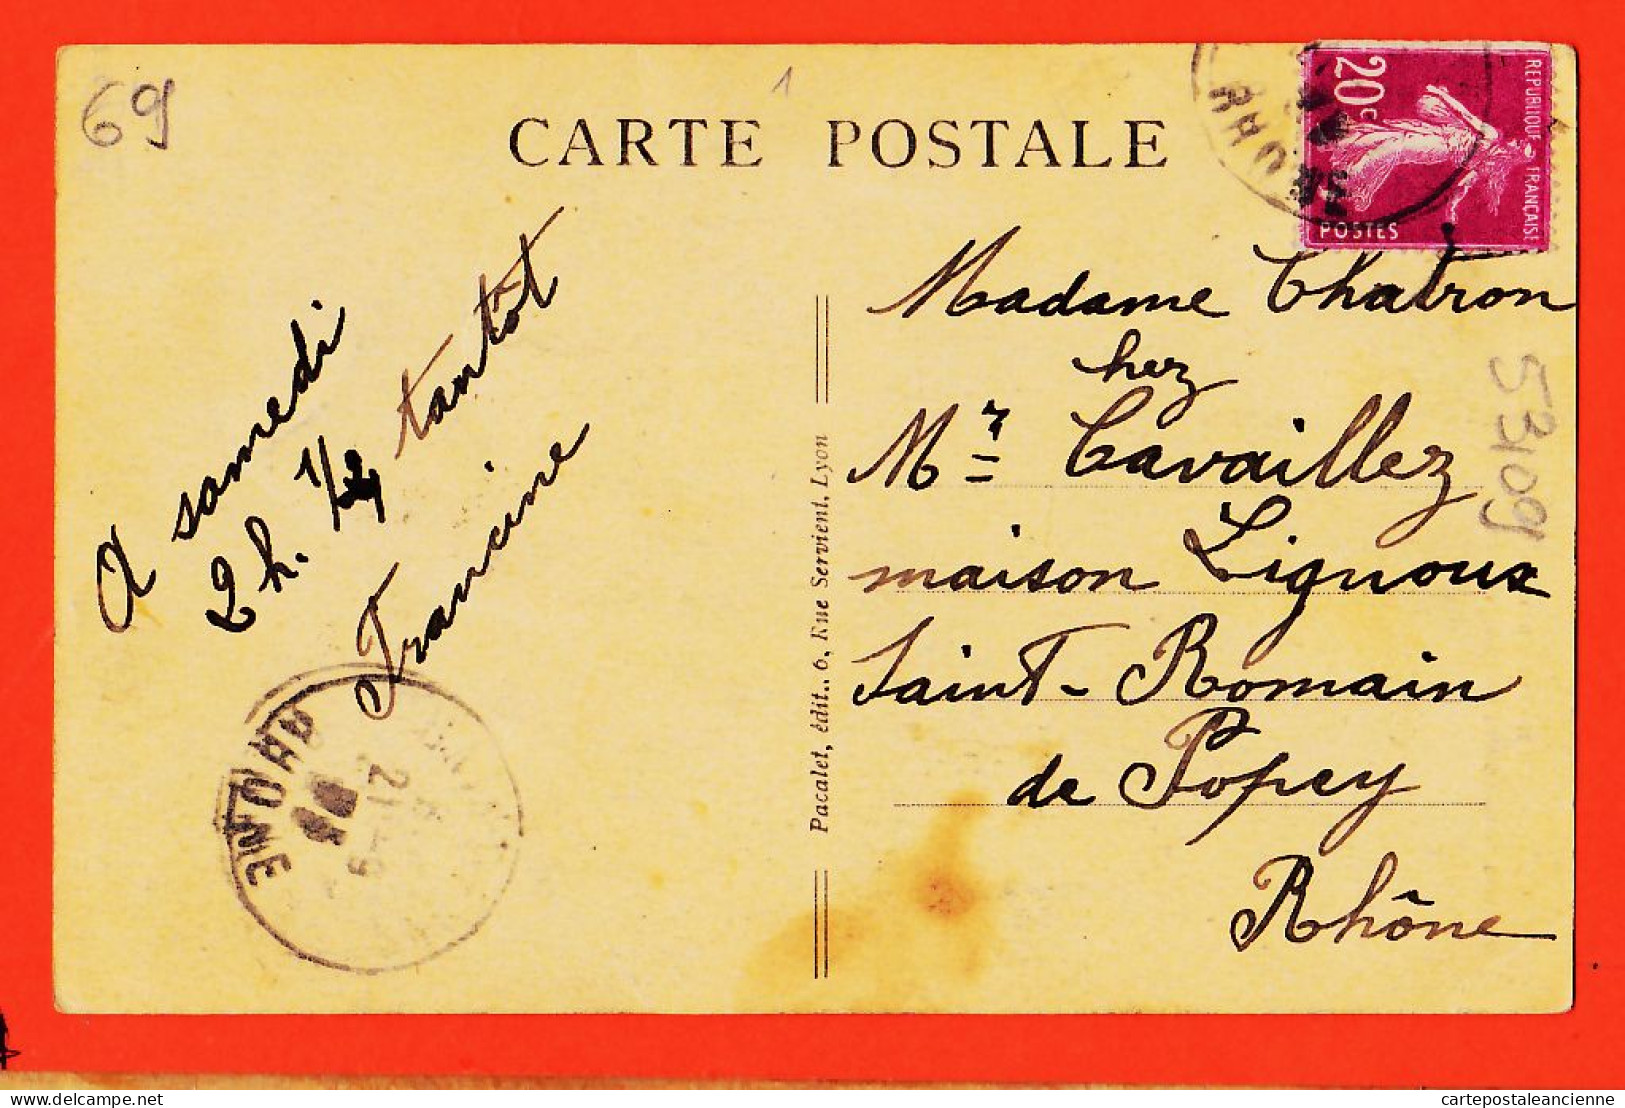 69
1
CARTE POSTALE
20c
REPUBLIQUE FRANÇAISE
POSTES
RHONE
A samedi
2 h. 1/2 tantôt
Francine
RHONE
21-9
Pacalet, édit., 6, Rue Servient, Lyon
Madame Chatron
chez
Mr Cavaillez
maison Lignoux
Saint-Romain
de Popey
Rhône
53109
cartepostaleancienne